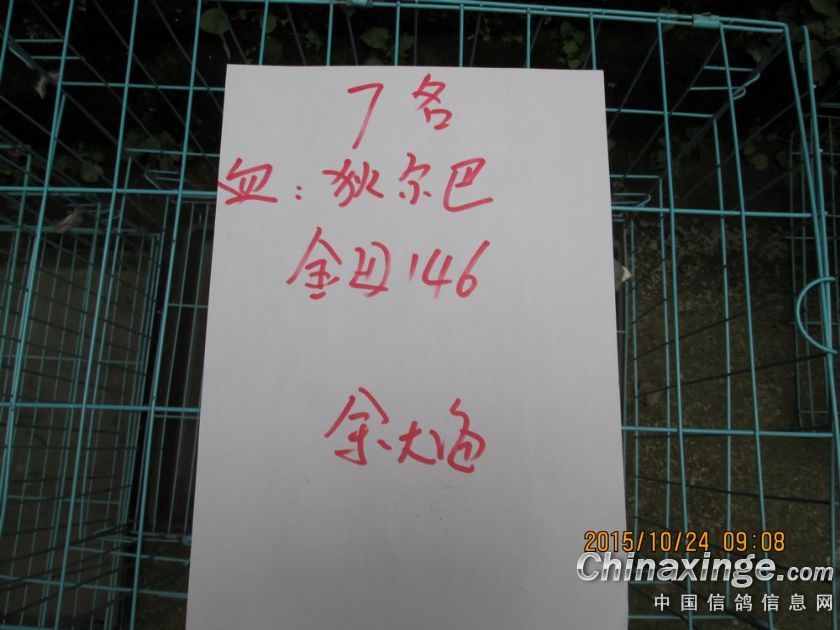 7名
血:狄尔巴
金母146
余大
2015/10/24 09:08
Chinaxinge.com
中国信鸽信息网